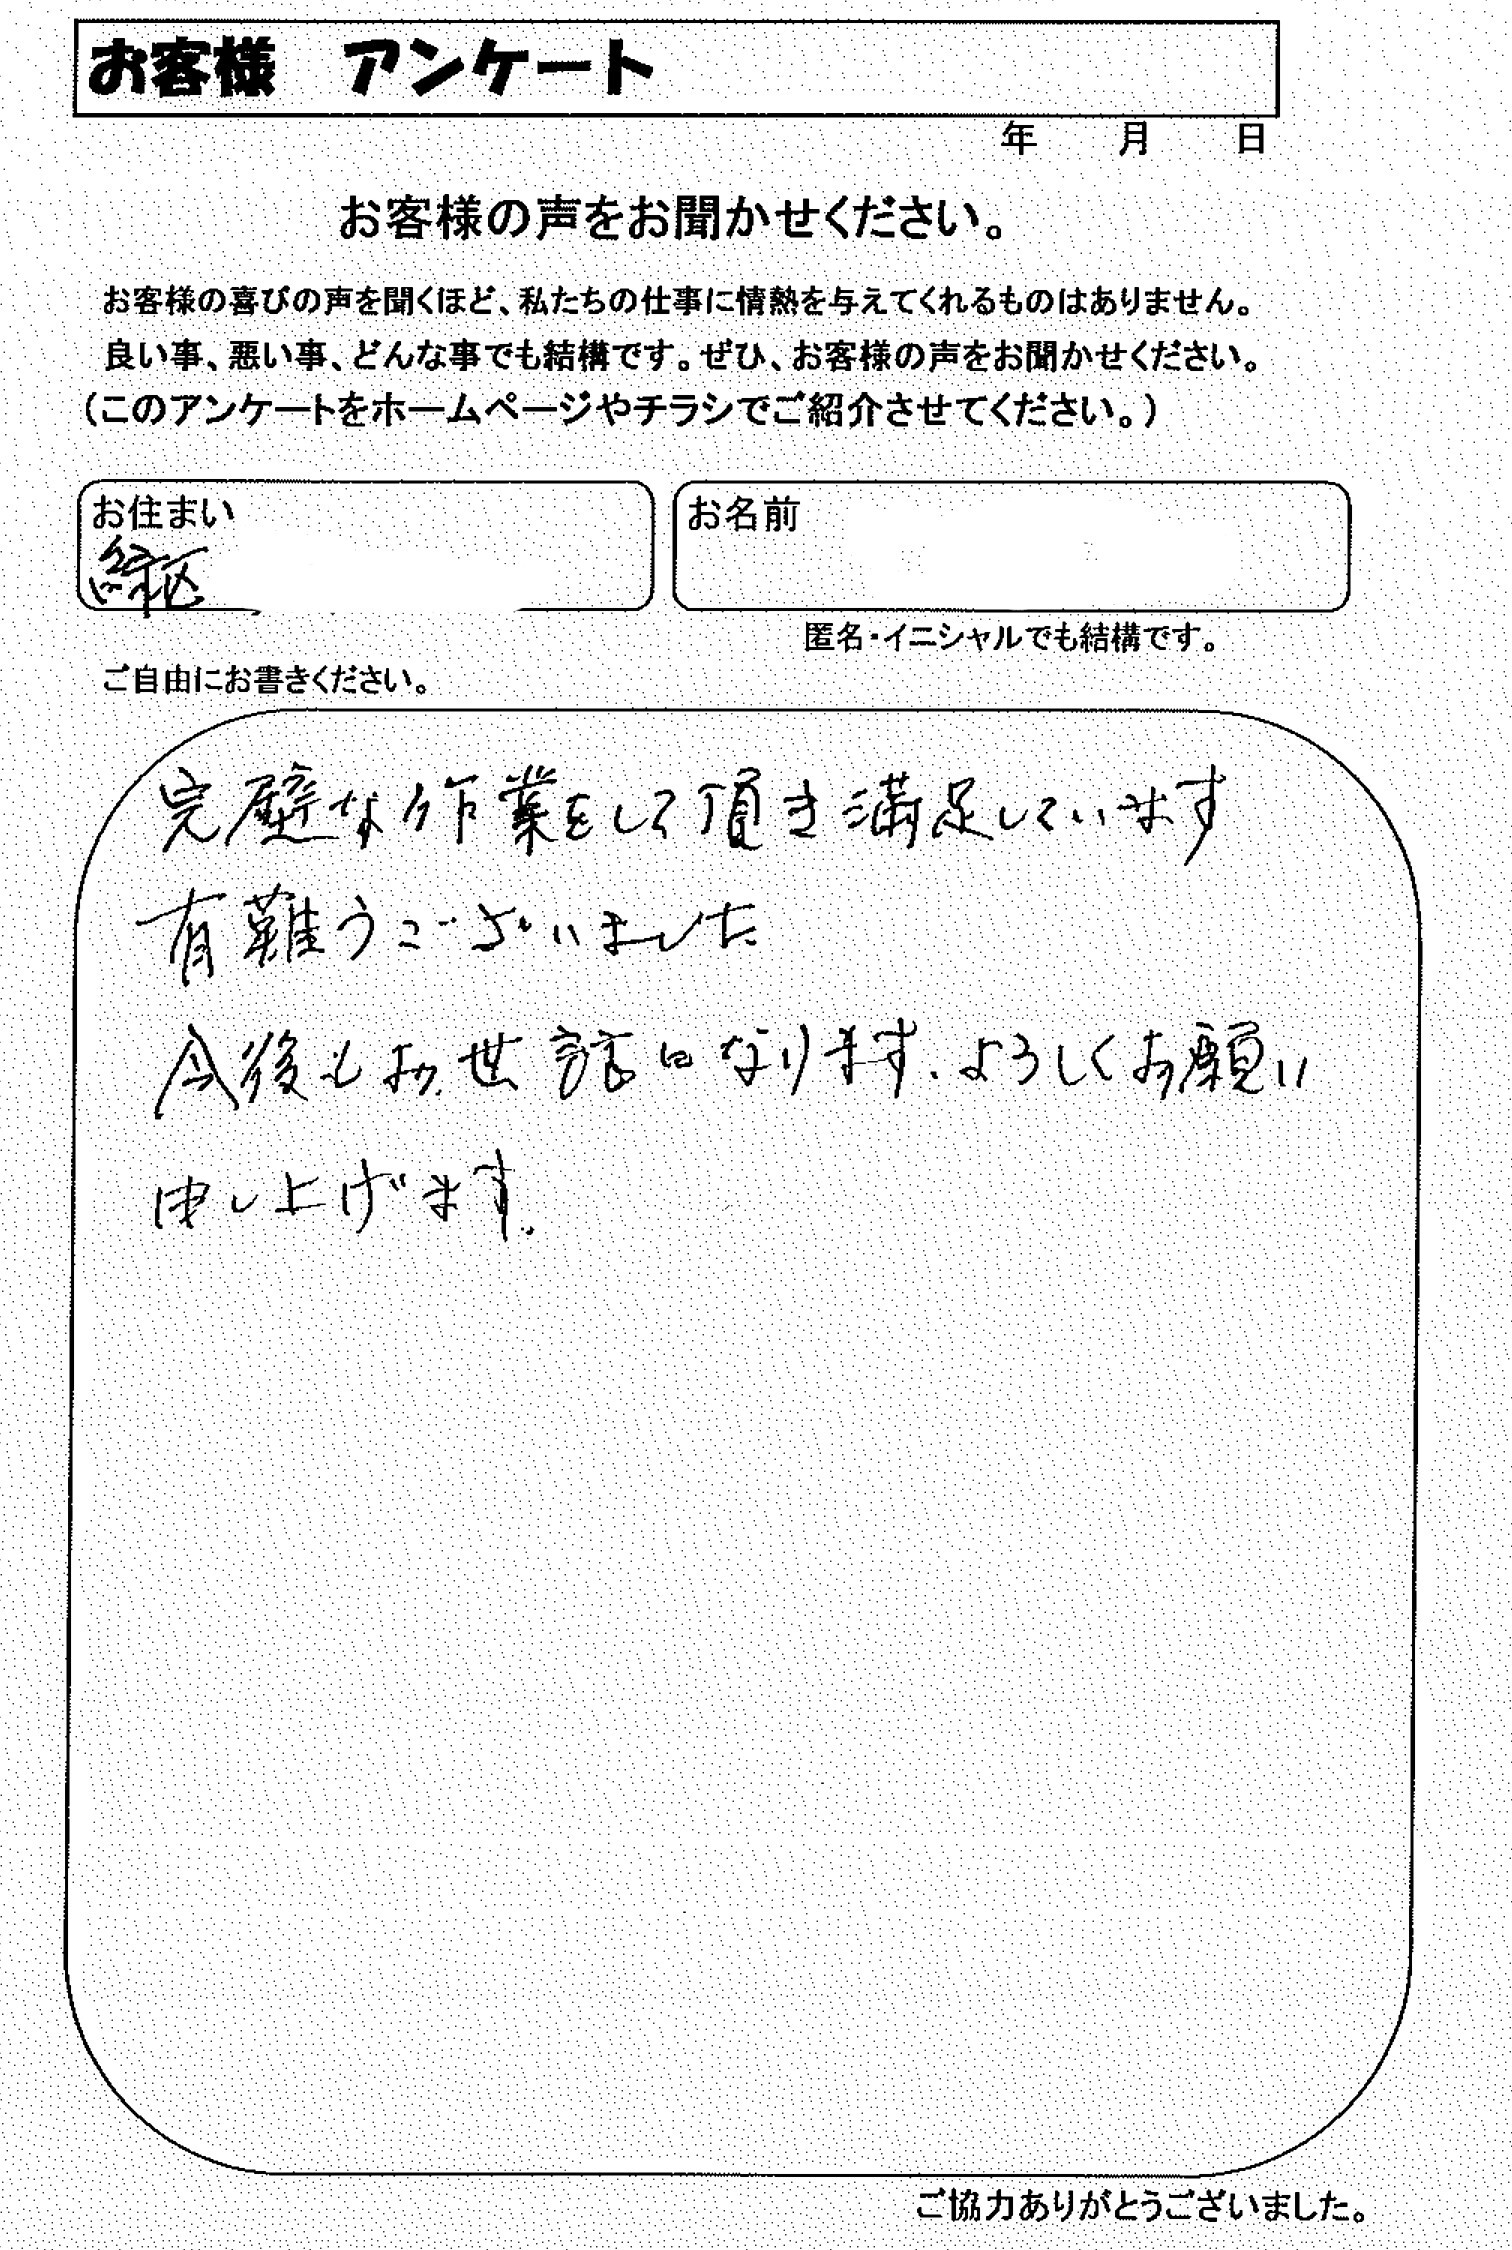 お客様 アンケート
年 月 日
お客様の声をお聞かせください。
お客様の喜びの声を聞くほど、私たちの仕事に情熱を与えてくれるものはありません。
良い事、悪い事、どんな事でも結構です。ぜひ、お客様の声をお聞かせください。
(このアンケートをホームページやチラシでご紹介させてください。)
お住まい
緑区
お名前
匿名・イニシャルでも結構です。
ご自由にお書きください。
完璧な作業をして頂き満足しています
有難うございました
今後もお世話になります.よろしくお願い
申し上げます.
ご協力ありがとうございました。